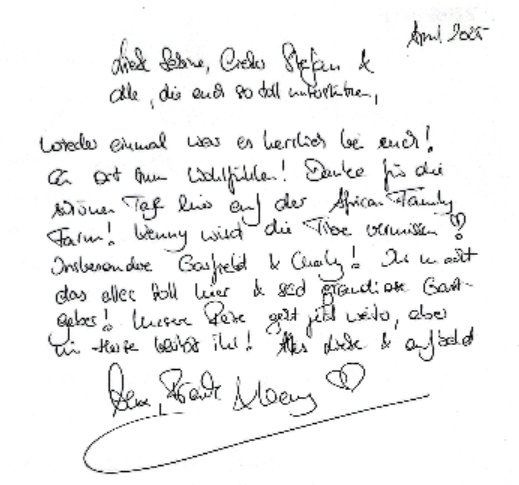 April 2025
Liebe Sabine, lieber Stefan &
alle, die euch so toll unterstützen,
wieder einmal war es herrlich bei euch!
Ein Ort zum Wohlfühlen! Danke für die
schönen Tage hier auf der African Family
Farm! Wenny wird die Tiere vermissen ♡!
Insbesondere Garfield & Charly! Ihr macht
das alles toll hier & seid grandiose Gast-
geber! Unsere Reise geht jetzt weiter, aber
im Herzen bleibt ihr! Alles Liebe & auf bald